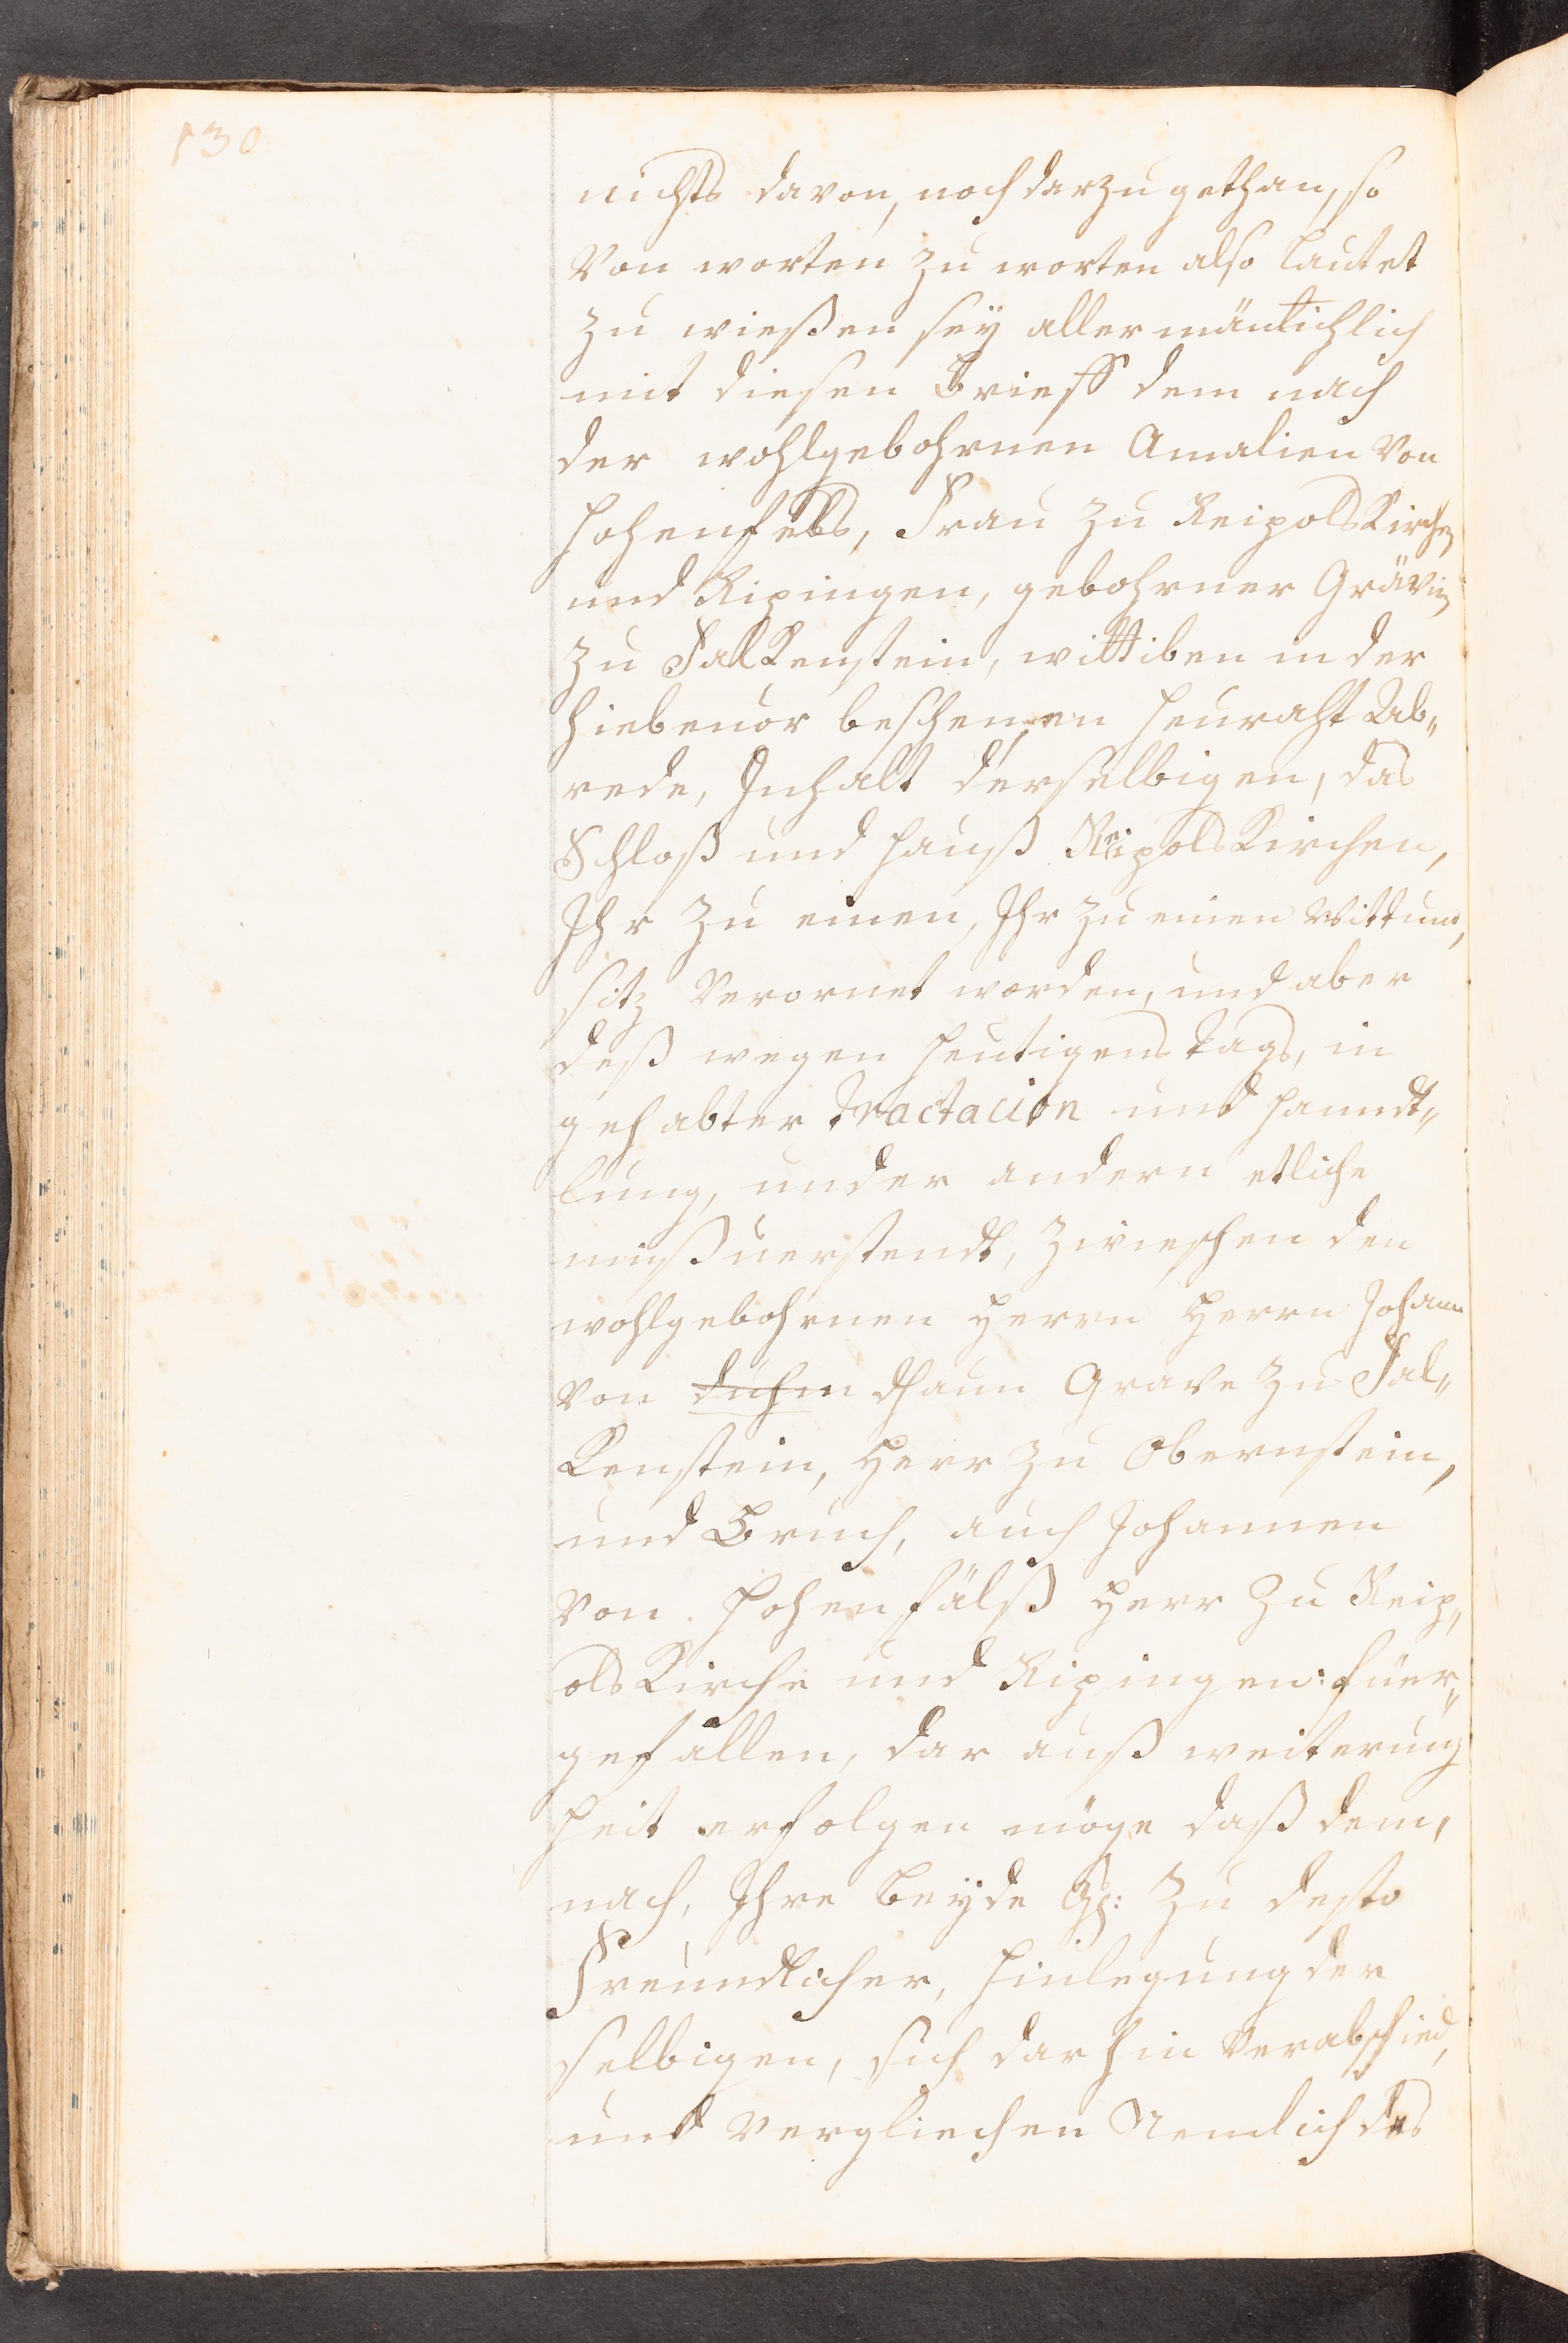 130
nichts davon, noch darzu gethan, so
Von worten zu worten also lautet
zu wießen seÿ aller mäntichlich
mit diesen brieff dem nach
der wohlgebohrnen Amalien Von
Hohenfelds, Frau zu ReipolsKirchen
und Ripingen, gebohrner Grävin
zu FalKenstein, wittiben in der
hiebeuor beschenen heuraht Ab„
rede, Inhalt derselbigen, das
Schloß und hauß ReipolsKirchen,
Ihr zu einen, Ihr zu einen Wittum,
sitz Verornet worden, und aber
deß wegen heutigens tags, in
gehabter tractacion und handt„
lung, under andern etliche
mißuerstendt, zwieschen den
wohlgebohrnen Herrn Herrn Johann
Von dhaun Grave zu Fal„
Kenstein, Herr zu Obernstein,
und Bruch, auch Johannen
Von Hohenfälß Herr zu Reip„
olsKirche und Ripingen: füer„
gefallen, dar auß weiterung
heit erfolgen möge daß dem„
nach, Ihre beÿde G: zu desto
Freundlicher, hinlegung der
selbigen, sich darhin Verabschied,
und Vergliechen Nemlich das